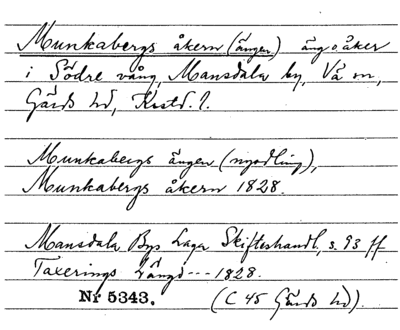 Munkabergs åkern (ängen) äng o åker
i Södre vång, Mansdala by, Vä sn,
Gärds hd, Krstd. l.
Munkabergs ängen (nyodling),
Munkabergs åkern 1828.
Mansdala Bys Laga Skifteshandl, s. 93 ff
Taxerings Längd --- 1828.
Nr 5343. (C 45 Gärds hd).